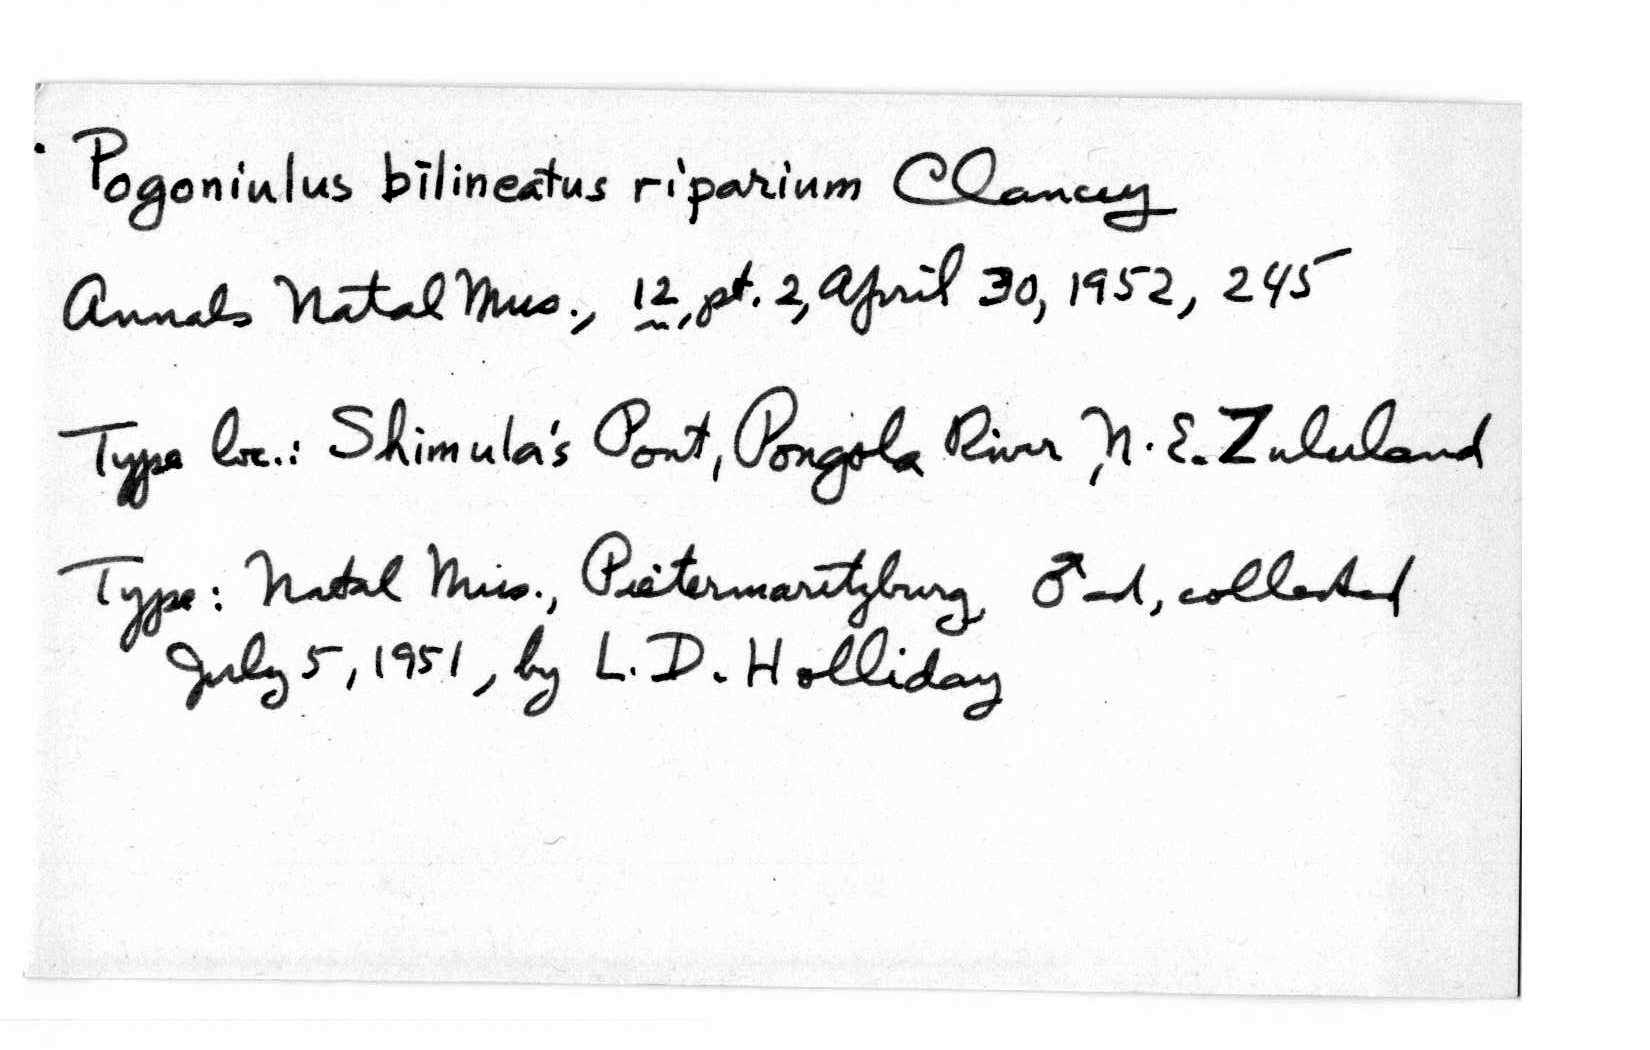 Pogoniulus bilineatus riparium Clancey
Annals Natal Mus., 12, pt. 2, April 30, 1952, 245
Type loc.: Shimula's Pont, Pongola River, N.E. Zululand
Type: Natal Mus., Pietermaritzburg, ♂ ad, collected
July 5, 1951, by L.D. Holliday